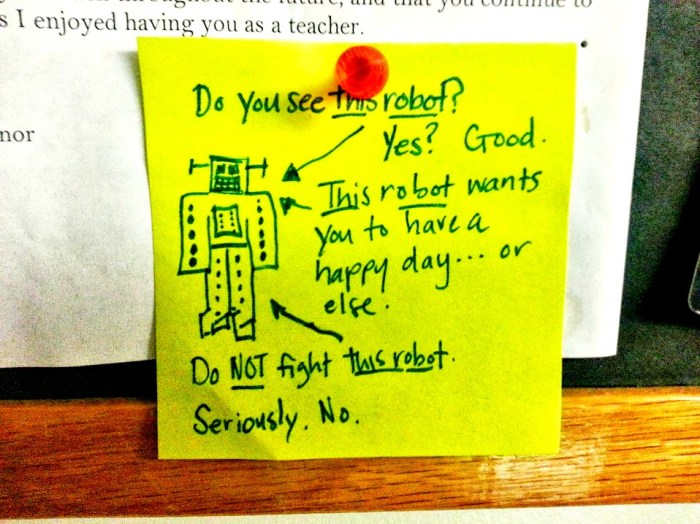 throughout the future, and that you continue to
s I enjoyed having you as a teacher.
nor
Do you see this robot?
Yes? Good.
This robot wants
you to have a
happy day... or
else.
Do NOT fight this robot.
Seriously. No.